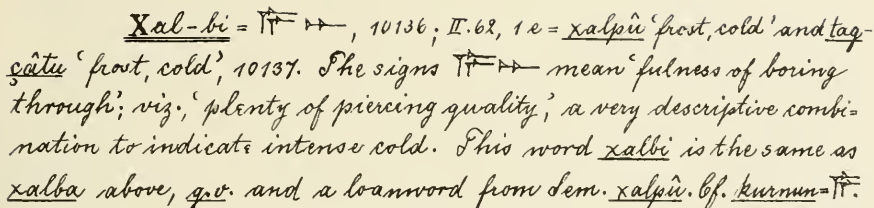 Xal-bi = 𒀀𒇉 𒁹𒁹, 10136; II. 62, 1 e = xalpû ‘frost, cold’ and taq-
çâtu ‘frost, cold’, 10137. The signs mean ‘fulness of boring
through’; viz., ‘plenty of piercing quality’, a very descriptive combi=
nation to indicate intense cold. This word xalbi is the same as
xalba above, q.v. and a loanword from Sem. xalpû. Cf. kurnun=